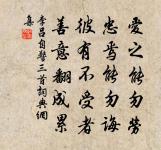 愛之能勿勞
忠焉能勿誨
彼有不受者
善意翻成累
李呂自警三首詞典網
集